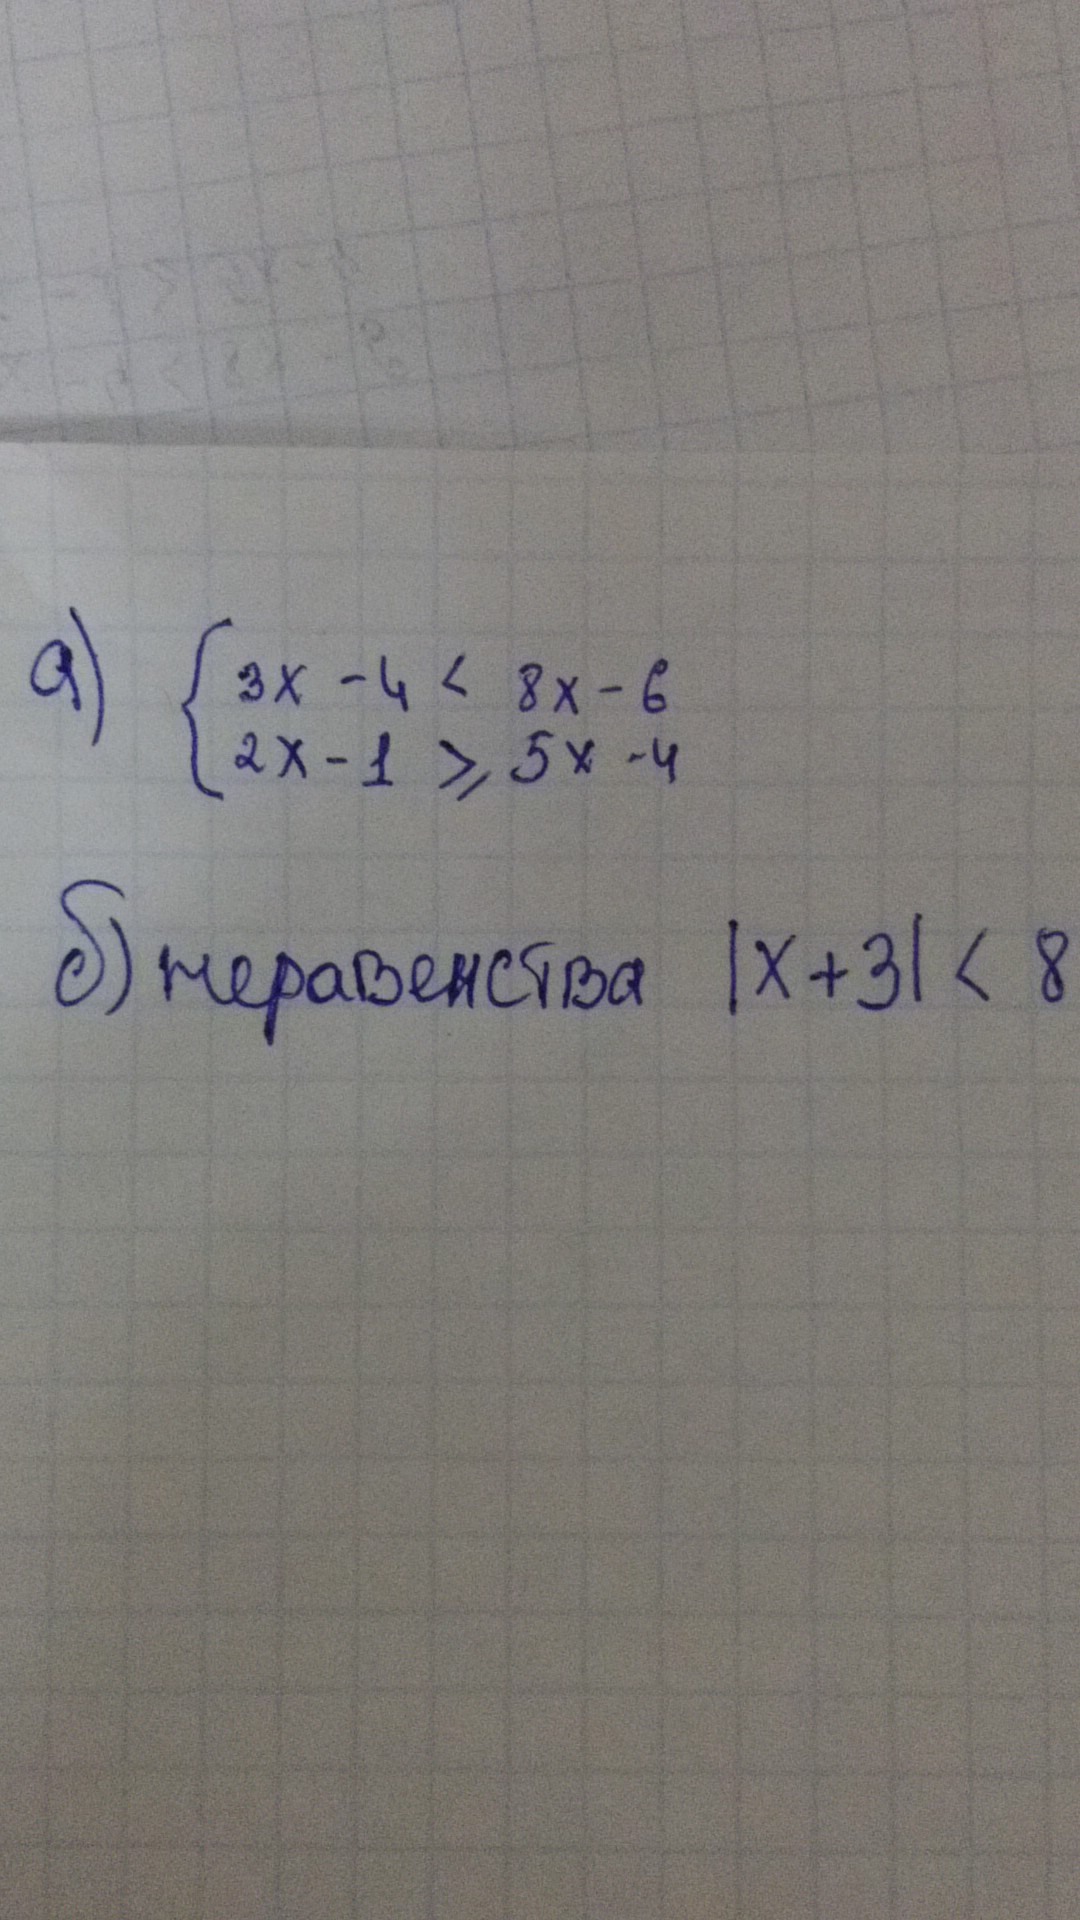 а) { 3x - 4 < 8x - 6
2x - 1 ⩾ 5x - 4
б) неравенства |x + 3| < 8